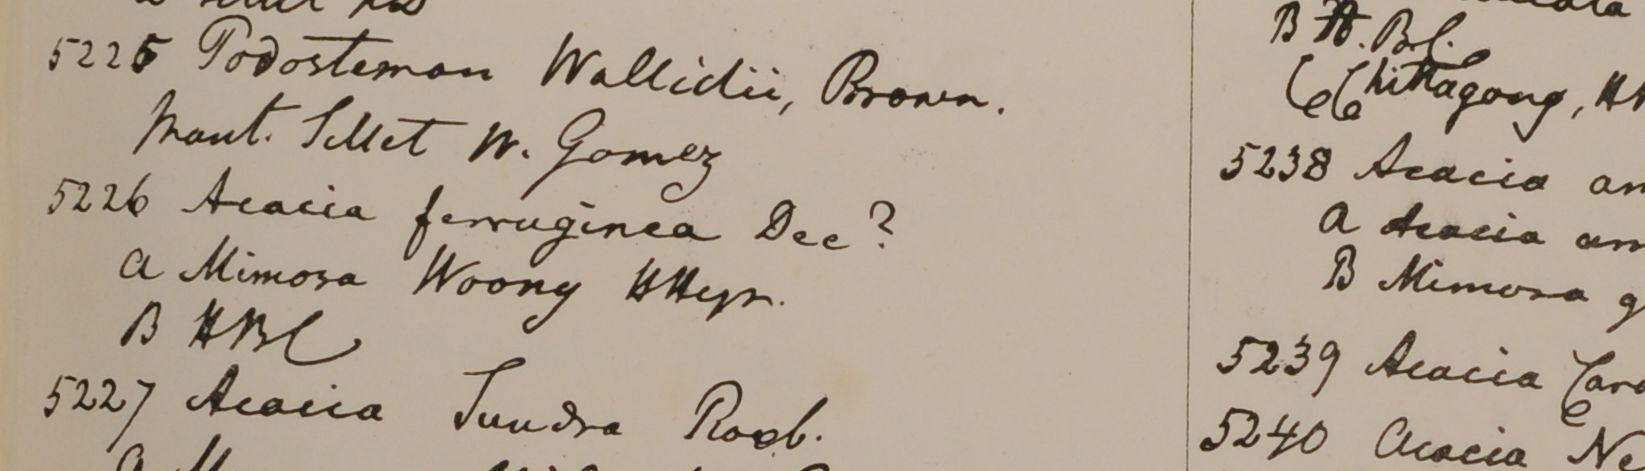 5225 Podosteman Wallichii, Brown.
Mont. Sillet W. Gomez
5226 Acacia ferruginea Dec?
a Mimosa Woony HHeyn.
B HBC
5227 Acacia Sundra Roxb.
B H.BC.
C Chittagong,
5238 Acacia
a Acacia
B Mimosa
5239 Acacia
5240 Acacia